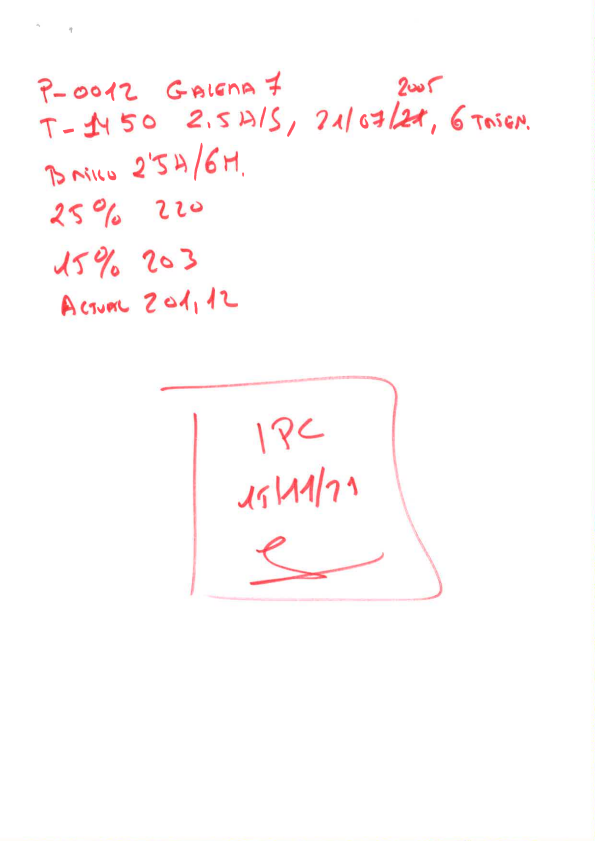 P-0012 GALENA 7
2005
T-1450 2.5 H/S, 21/07/21, 6 TRIEN.
2'5H/6M.
25% 220
15% 203
ACTUAL 201,12
IPC
15/11/21